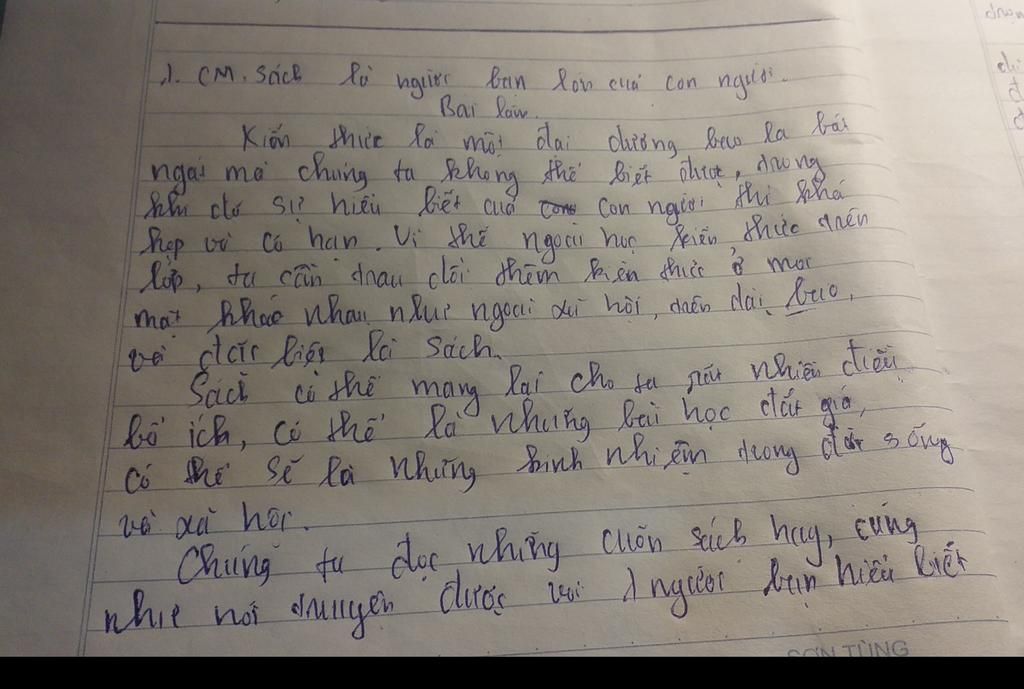 1. CM. Sách là người bạn lớn của con người.
Bài làm.
Kiến thức là một đại dương bao la bát
ngát mà chúng ta không thể biết được, trong
khi đó sự hiểu biết của con người thì khá
hẹp và có hạn. Vì thế ngoài học kiến thức trên
lớp, ta cần trau dồi thêm kiến thức ở mọi
mặt khác nhau như ngoài xã hội, trên đài, báo,
và đặc biệt là sách.
Sách có thể mang lại cho ta rất nhiều điều
bổ ích, có thể là những bài học đắt giá,
có thể sẽ là những kinh nhiệm trong đời sống
và xã hội.
Chúng ta đọc những cuốn sách hay, cũng
như nói chuyện được với 1 người bạn hiểu biết
SƠN TÙNG